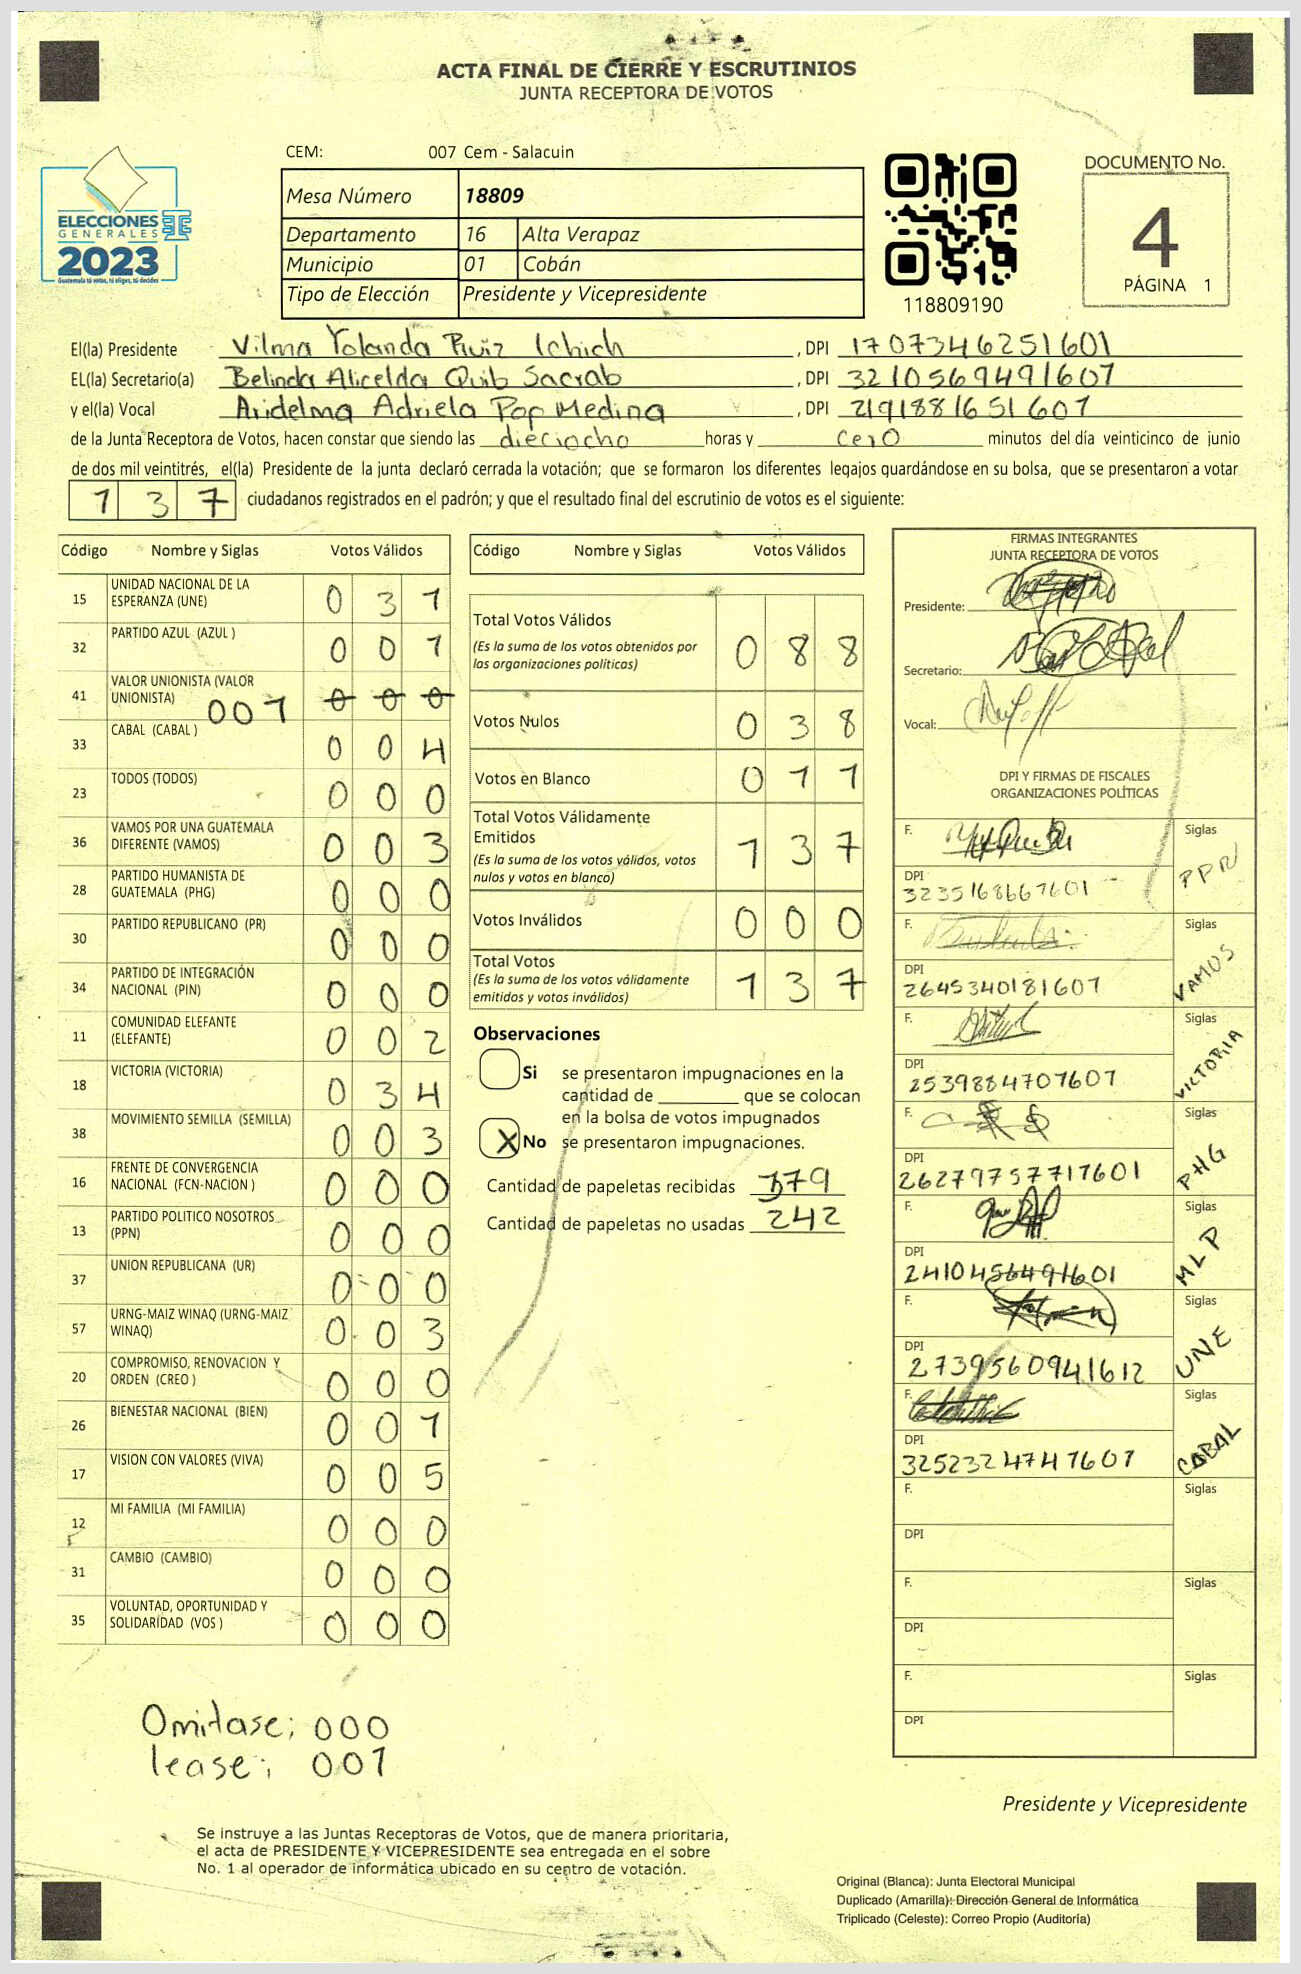 ACTA FINAL DE CIERRE Y ESCRUTINIOS
JUNTA RECEPTORA DE VOTOS
ELECCIONES
GENERALES
2023
Guatemala tú votas, tú eliges, tú decides
CEM: 007 Cem - Salacuin
Mesa Número 18809
Departamento 16 Alta Verapaz
Municipio 01 Cobán
Tipo de Elección Presidente y Vicepresidente
118809190
DOCUMENTO No.
4
PÁGINA 1
El(la) Presidente Vilma Yolanda Ruiz Ichich , DPI 1707346251601
EL(la) Secretario(a) Belinda Alicelda Quib Sacrab , DPI 3210569491607
y el(la) Vocal Aridelma Adriela Pop Medina , DPI 2191881651607
de la Junta Receptora de Votos, hacen constar que siendo las dieciocho horas y cero minutos del día veinticinco de junio
de dos mil veintitrés, el(la) Presidente de la junta declaró cerrada la votación; que se formaron los diferentes legajos guardándose en su bolsa, que se presentaron a votar
137 ciudadanos registrados en el padrón; y que el resultado final del escrutinio de votos es el siguiente:
Código Nombre y Siglas Votos Válidos
15 UNIDAD NACIONAL DE LA ESPERANZA (UNE) 0 3 1
32 PARTIDO AZUL (AZUL ) 0 0 1
41 VALOR UNIONISTA (VALOR UNIONISTA) 001 0 0 0
33 CABAL (CABAL ) 0 0 4
23 TODOS (TODOS) 0 0 0
36 VAMOS POR UNA GUATEMALA DIFERENTE (VAMOS) 0 0 3
28 PARTIDO HUMANISTA DE GUATEMALA (PHG) 0 0 0
30 PARTIDO REPUBLICANO (PR) 0 0 0
34 PARTIDO DE INTEGRACIÓN NACIONAL (PIN) 0 0 0
11 COMUNIDAD ELEFANTE (ELEFANTE) 0 0 2
18 VICTORIA (VICTORIA) 0 3 4
38 MOVIMIENTO SEMILLA (SEMILLA) 0 0 3
16 FRENTE DE CONVERGENCIA NACIONAL (FCN-NACION ) 0 0 0
13 PARTIDO POLITICO NOSOTROS (PPN) 0 0 0
37 UNION REPUBLICANA (UR) 0 0 0
57 URNG-MAIZ WINAQ (URNG-MAIZ WINAQ) 0 0 3
20 COMPROMISO, RENOVACION Y ORDEN (CREO ) 0 0 0
26 BIENESTAR NACIONAL (BIEN) 0 0 1
17 VISION CON VALORES (VIVA) 0 0 5
12 MI FAMILIA (MI FAMILIA) 0 0 0
31 CAMBIO (CAMBIO) 0 0 0
35 VOLUNTAD, OPORTUNIDAD Y SOLIDARIDAD (VOS ) 0 0 0
Omitase; 000
lease; 001
Código Nombre y Siglas Votos Válidos
Total Votos Válidos 0 8 8
(Es la suma de los votos obtenidos por
las organizaciones políticas)
Votos Nulos 0 3 8
Votos en Blanco 0 1 1
Total Votos Válidamente
Emitidos 1 3 7
(Es la suma de los votos válidos, votos
nulos y votos en blanco)
Votos Inválidos 0 0 0
Total Votos 1 3 7
(Es la suma de los votos válidamente
emitidos y votos inválidos)
Observaciones
Si se presentaron impugnaciones en la
cantidad de ________ que se colocan
en la bolsa de votos impugnados
X No se presentaron impugnaciones.
Cantidad de papeletas recibidas 379
Cantidad de papeletas no usadas 242
FIRMAS INTEGRANTES
JUNTA RECEPTORA DE VOTOS
Presidente:
Secretario:
Vocal:
DPI Y FIRMAS DE FISCALES
ORGANIZACIONES POLÍTICAS
F. Siglas PPN
DPI 3235168667601
F. Siglas VAMOS
DPI 2645340181607
F. Siglas VICTORIA
DPI 2539884707607
F. Siglas PHG
DPI 26279757717601
F. Siglas MLP
DPI 2410456491601
F. Siglas UNE
DPI 2739560941612
F. Siglas CABAL
DPI 3252324747607
F. Siglas
DPI
F. Siglas
DPI
F. Siglas
DPI
Presidente y Vicepresidente
Se instruye a las Juntas Receptoras de Votos, que de manera prioritaria,
el acta de PRESIDENTE Y VICEPRESIDENTE sea entregada en el sobre
No. 1 al operador de informática ubicado en su centro de votación.
Original (Blanca): Junta Electoral Municipal
Duplicado (Amarilla): Dirección General de Informática
Triplicado (Celeste): Correo Propio (Auditoría)